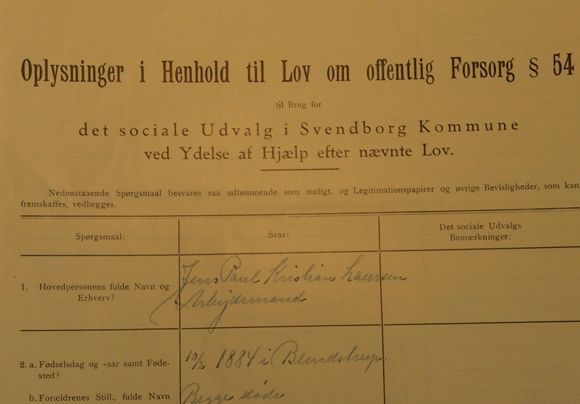 Oplysninger i Henhold til Lov om offentlig Forsorg § 54
til Brug for
det sociale Udvalg i Svendborg Kommune
ved Ydelse af Hjælp efter nævnte Lov.
Nedenstaaende Spørgsmaal besvares saa udtømmende som muligt, og Legitimationspapirer og øvrige Bevisligheder, som kan
fremskaffes, vedlægges.
Spørgsmaal:
Svar:
Det sociale Udvalgs
Bemærkninger:
1. Hovedpersonens fulde Navn og
Erhverv?
Jens Paul Kristian Laursen
Arbejdsmand
2. a. Fødselsdag og -aar samt Føde-
sted?
10/2 1884 i Blendstrup.
b. Forældrenes Still., fulde Navn
Begge døde